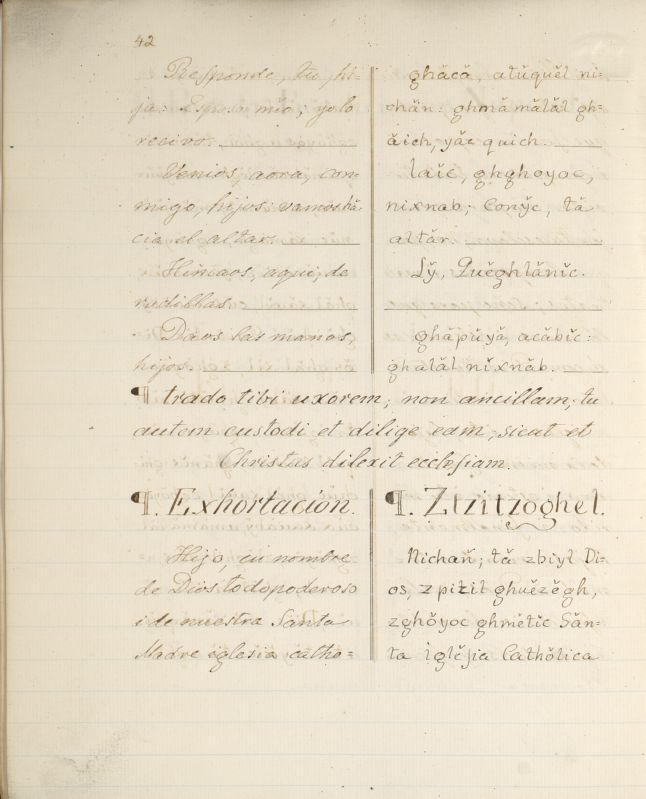 42
Responde, tu, hi=
ja: Esposo mio; yo lo
recivo.
Venios, aora, con=
migo, hijos: vamos há=
cia el altar.
Hincaos, aqui; de
rudillas.
Daos las manos,
hijos.
ghăcă, atŭquĕl ni=
chăn: ghmă mălăl gh=
ăich, yăc quich.
laĭc, ghghoyoc,
nixnab; Conўc, tă
altăr.
Lў, Quĕghlănĭc.
ghăpŭyă, acăbĭc:
ghălăl nĭxnăb.
¶ trado tibi uxorem; non ancillam; tu
autem custodi et dilige eam, sicut et
Christus dilexit ecclesiam.
¶. Exhortación.
Hijo, en nombre
de Dios todopoderoso
i de nuestra Santa
Madre iglesia catho=
¶. Ztzitzoghel.
Nichañ; tă zbiyl Di=
os, zpitzil ghuĕzĕgh,
zghŏyoc ghmĕtic Săn=
ta iglĕsia Cathŏlica